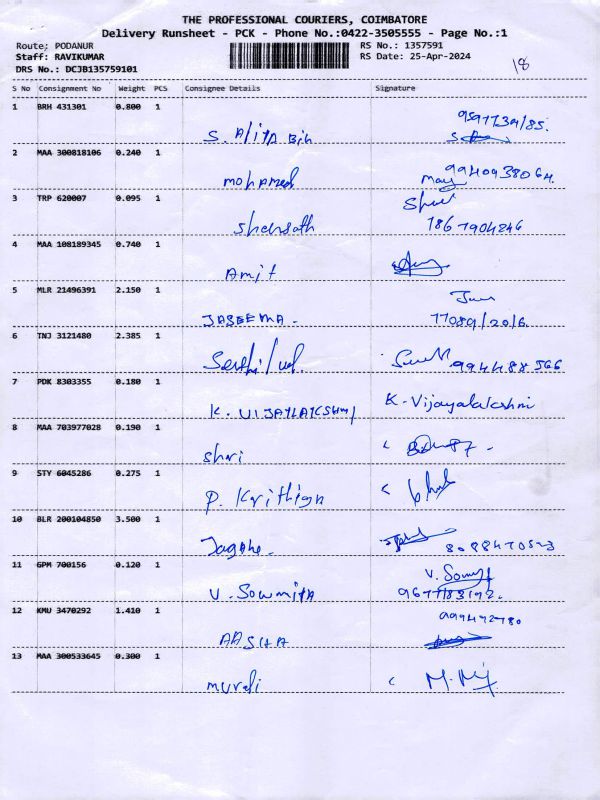 THE PROFESSIONAL COURIERS, COIMBATORE
Delivery Runsheet - PCK - Phone No.:0422-3505555 - Page No.:1
Route: PODANUR
RS No.: 1357591
Staff: RAVIKUMAR
RS Date: 25-Apr-2024
DRS No.: DCJB135759101
18
S No Consignment No Weight PCS Consignee Details Signature
1 BRH 431301 0.800 1
S. Alija Bih
2 MAA 300818106 0.240 1
9940938064.
mohamed
3 TRP 620007 0.095 1
Shensath 7867904246
4 MAA 108189345 0.740 1
Amit
5 MLR 21496391 2.150 1
JASEEMA - 77089/2016.
6 TNJ 3121480 2.385 1
994488566
7 PDK 8303355 0.180 1
K. VIJAYLAKSHMI K-Vijayalakshmi
8 MAA 703977028 0.190 1
shri
9 STY 6045286 0.275 1
P. Krithiga
10 BLR 200104850 3.500 1
8088470523
11 GPM 700156 0.120 1
V. Sowmiya 9677183192.
12 KMU 3470292 1.410 1
AASHA
13 MAA 300533645 0.300 1
murali